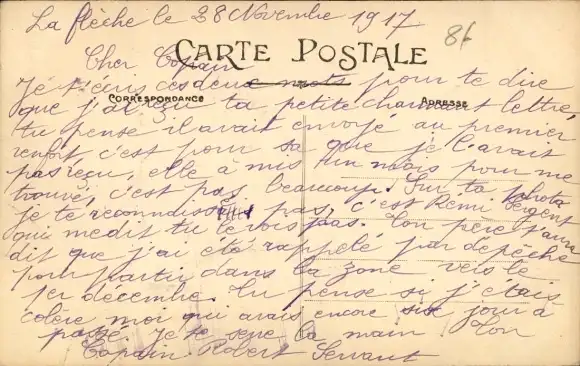 La flèche le 28 Novembre 1917
86
Cher Copain
CARTE POSTALE
Je t'écris ces deux mots pour te dire
CORRESPONDANCE
ADRESSE
que j'ai reçu ta petite charmant lettre
tu pense il avait envoyé au premier
renfort c'est pour sa que je l'avait
pas reçu, elle à mis un mois pour me
trouvé, c'est pas beaucoup. Sur ta photo
je te reconnaissais pas, c'est Rémi Sergent
qui me dit tu le vois pas. Ton père t'aura
dit que j'ai été rappelé par dépêche
pour partir dans la zone vers le
1er décembre. Tu pense si j'etais
colère moi qui avais encore six jour à
passé. Je te serre la main. Ton
Copain Robert Servant